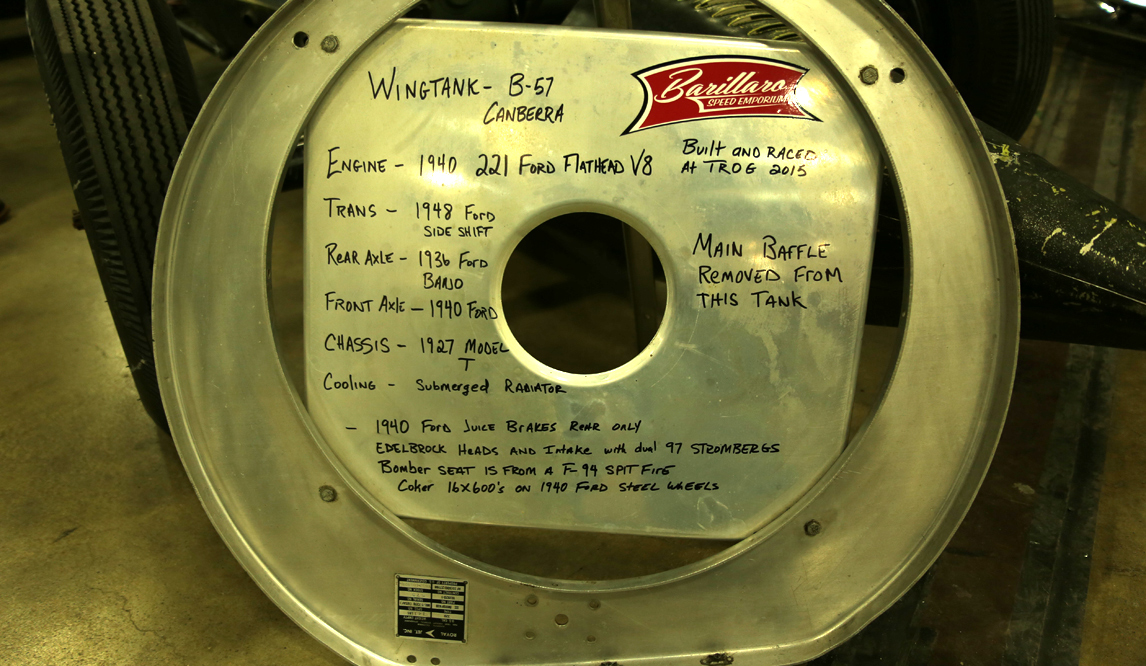 WINGTANK - B-57
CANBERRA
Barillaro
SPEED EMPORIUM
ENGINE - 1940 221 FORD FLATHEAD V8
Built and RACED
At TROG 2015
TRANS - 1948 Ford
SIDE SHIFT
REAR AXLE - 1936 Ford
BANJO
FRONT AXLE - 1940 FORD
CHASSIS - 1927 MODEL
T
COOLING - Submerged RADIATOR
MAIN BAFFLE
REMOVED FROM
THIS TANK
- 1940 FORD JUICE BRAKES REAR ONLY
EDELBROCK HEADS AND Intake with dual 97 STROMBERGS
Bomber SEAT IS FROM A F-94 SPIT FIRE
Coker 16X600's ON 1940 FORD STEEL WHEELS
ROYAL JET, INC.